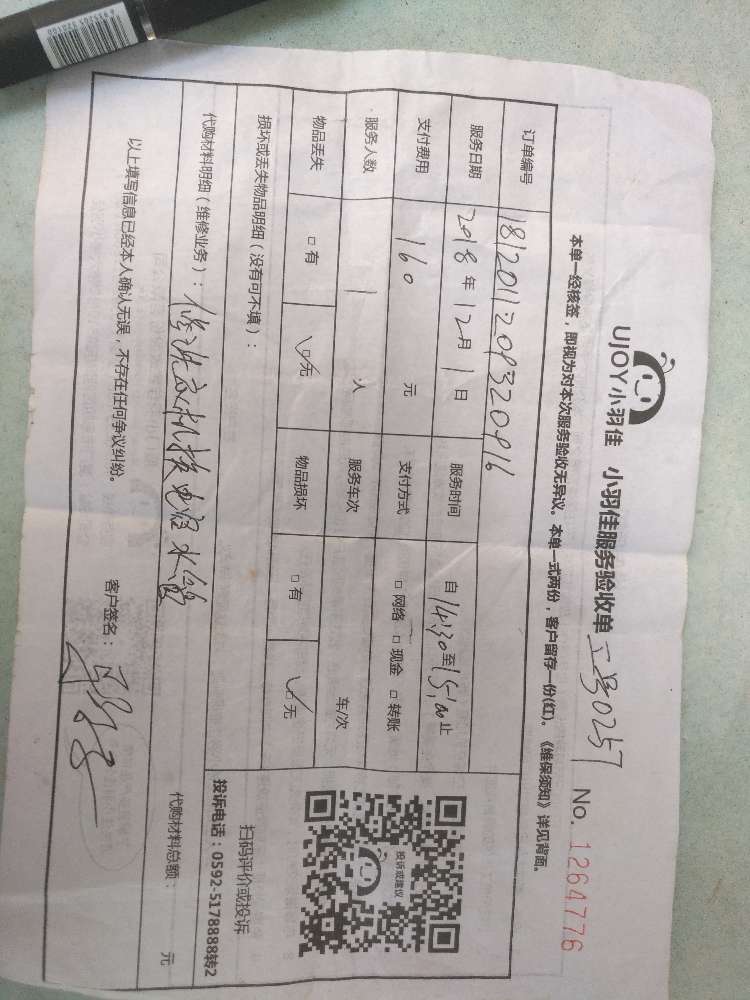 UJOY小羽佳 小羽佳服务验收单 工号0257 No. 1264776
本单一经核签，即视为对本次服务验收无异议。本单一式两份，客户留存一份(红)。《维保须知》详见背面。
订单编号 1812011209320916
服务日期 2018年12月1日 服务时间 自14:30至15:00止
支付费用 160元 支付方式 □网络 □现金 □转账
服务人数 1人 服务车次 车/次
物品丢失 □有 ☑无 物品损坏 □有 ☑无
投诉或建议
扫码评价或投诉
投诉电话：0592-5178888转2
损坏或丢失物品明细（没有可不填）：
代购材料明细（维修业务）：修洗衣机换电容水管 代购材料总额： 元
以上填写信息已经本人确认无误，不存在任何争议纠纷。
客户签名：